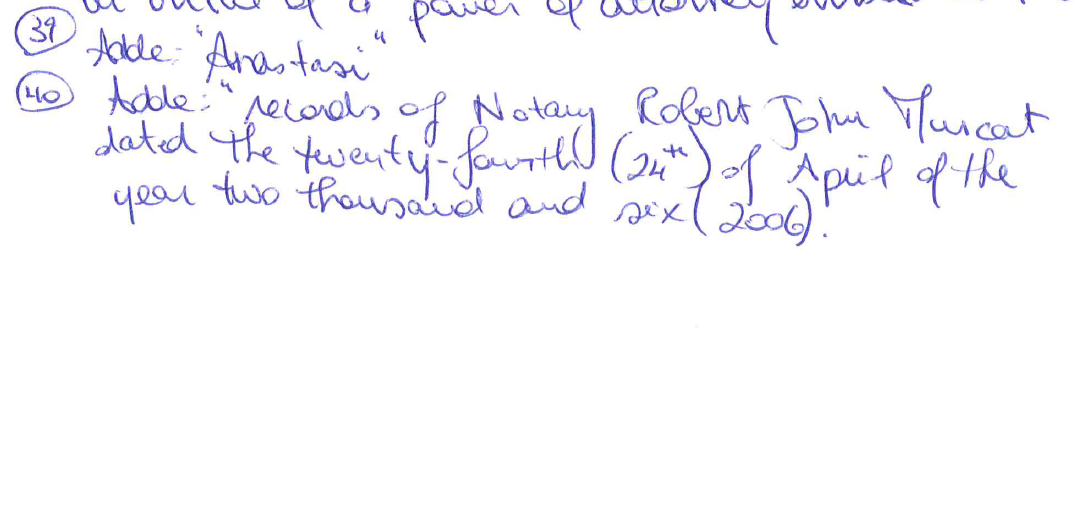 of a power of attorney
(39) Adde: "Anastasi"
(40) Adde: "records of Notary Robert John Muscat
dated the twenty-fourth (24th) of April of the
year two thousand and six (2006).